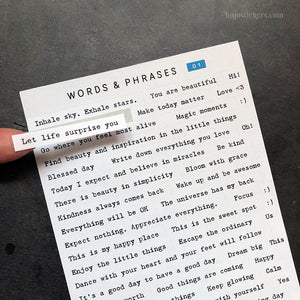 hajostickers.com
WORDS & PHRASES 01
Inhale sky. Exhale stars. You are beautiful Hi!
Make today matter Love <3
Let life surprise you
Go where you feel most alive Magic moments :)
Find beauty and inspiration in the little things
Blessed day Write down everything you love Oh!
Today I expect and believe in miracles Be kind
There is beauty in simplicity Bloom with grace
Kindness always comes back Wake up and be awesome
Everything will be OK The universe has my back
Expect nothing. Appreciate everything. Focus :)
This is my happy place This is the sweet spot :)
Enjoy the little things Escape the ordinary Us
Dance with your heart and your feet will follow
It's a good day to have a good day Dream big This
Good things are coming Happy
Keep glowing Calm
Yes